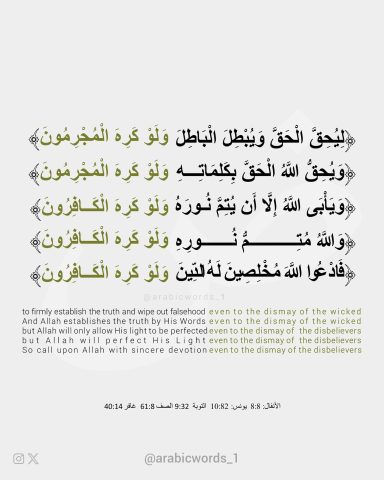 ﴿لِيُحِقَّ الْحَقَّ وَيُبْطِلَ الْبَاطِلَ وَلَوْ كَرِهَ الْمُجْرِمُونَ﴾
﴿وَيُحِقُّ اللَّهُ الْحَقَّ بِكَلِمَاتِـــهِ وَلَوْ كَرِهَ الْمُجْرِمُونَ﴾
﴿وَيَأْبَى اللَّهُ إِلَّا أَن يُتِمَّ نُـورَهُ وَلَوْ كَرِهَ الْكَـــافِرُونَ﴾
﴿وَاللَّهُ مُتِــــــــمُّ نُـــــورِهِ وَلَوْ كَرِهَ الْكَـــافِرُونَ﴾
﴿فَادْعُوا اللَّهَ مُخْلِصِينَ لَهُ الدِّينَ وَلَوْ كَرِهَ الْكَـــافِرُونَ﴾
@arabicwords_1
to firmly establish the truth and wipe out falsehood even to the dismay of the wicked
And Allah establishes the truth by His Words even to the dismay of the wicked
but Allah will only allow His light to be perfected even to the dismay of the disbelievers
but Allah will perfect His Light even to the dismay of the disbelievers
So call upon Allah with sincere devotion even to the dismay of the disbelievers
الأنفال: 8:8 يونس: 10:82 التوبة 9:32 الصف 61:8 غافر 40:14
@arabicwords_1